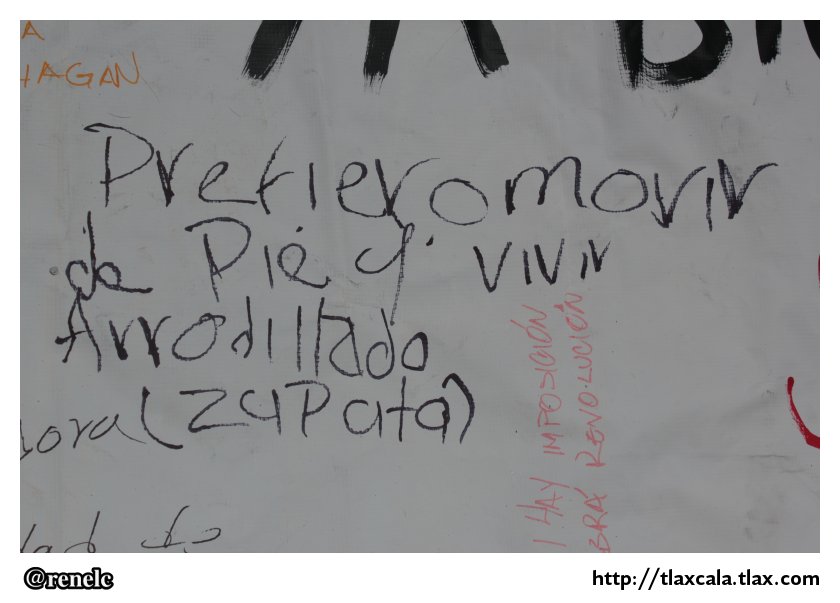 A
HAGAN
Prefiero morir
de Pie q' vivir
Arrodillado
(Zapata)
HAY IMPOSICIÓN
REVOLUCIÓN
@renelc
http://tlaxcala.tlax.com